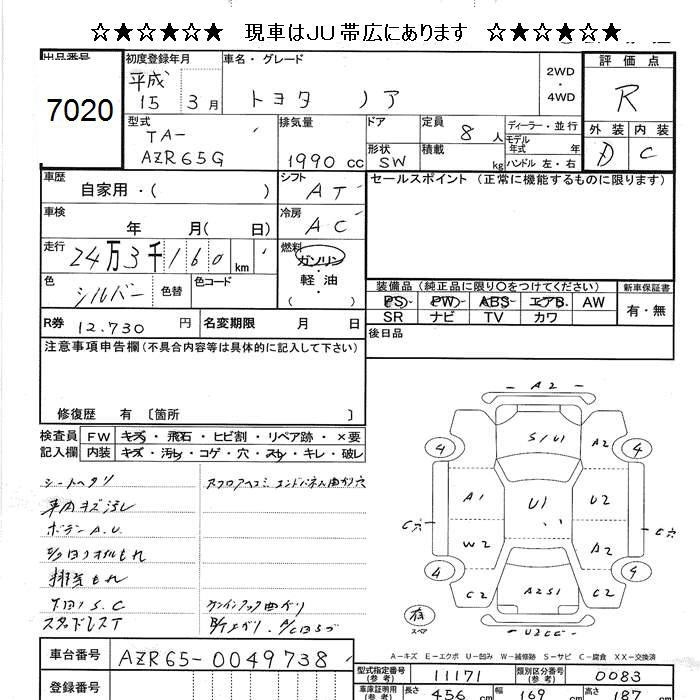 ☆★☆★☆★ 現車はJU帯広にあります ☆★☆★☆★
出品番号 初度登録年月 車名・グレード 2WD・4WD 評価点
7020 平成15 3月 トヨタ ノア R
型式 排気量 ドア 定員 8人 ディーラー・並行 外装 内装
モデル年式 年
TA-AZR65G 1990cc 形状 SW 積載 kg ハンドル 左・右 D C
車歴 自家用・( ) シフト AT セールスポイント (正常に機能するものに限ります)
車検 年 月( 日) 冷房 AC
走行 24万3千160km 燃料 ガソリン・軽油 ( )
色 シルバー 色替 色コード
装備品(純正品に限り〇をつけてください) 新車保証書
PS PW ABS エアB. AW 有・無
SR ナビ TV カワ
R券 12.730円 名変期限 月 日 後日品
注意事項申告欄(不具合内容等は具体的に記入して下さい)
修復歴 有 〔箇所 〕
検査員 FW キズ・飛石・ヒビ割・リペア跡・×要
記入欄 内装 キズ・汚れ・コゲ・穴・スレ・キレ・破レ
シートヘタリ
車内キズ汚レ
ボデーA.U.
排気もれ
スタッドレスT
A2
S1U1
A2
4 4
A1 U1 U2
C穴 C穴
W2 A2
4 4
C2 A2S1 C2
U2C2
有
スペア
A-キズ E-エクボ U-凹み W-補修跡 S-サビ C-腐食 XX-交換済
車台番号 AZR65-0049738
登録番号
型式指定番号(参考) 11171 類別区分番号(参考) 0083
車庫証明用(参考) 長さ 456cm 幅 169cm 高さ 187cm